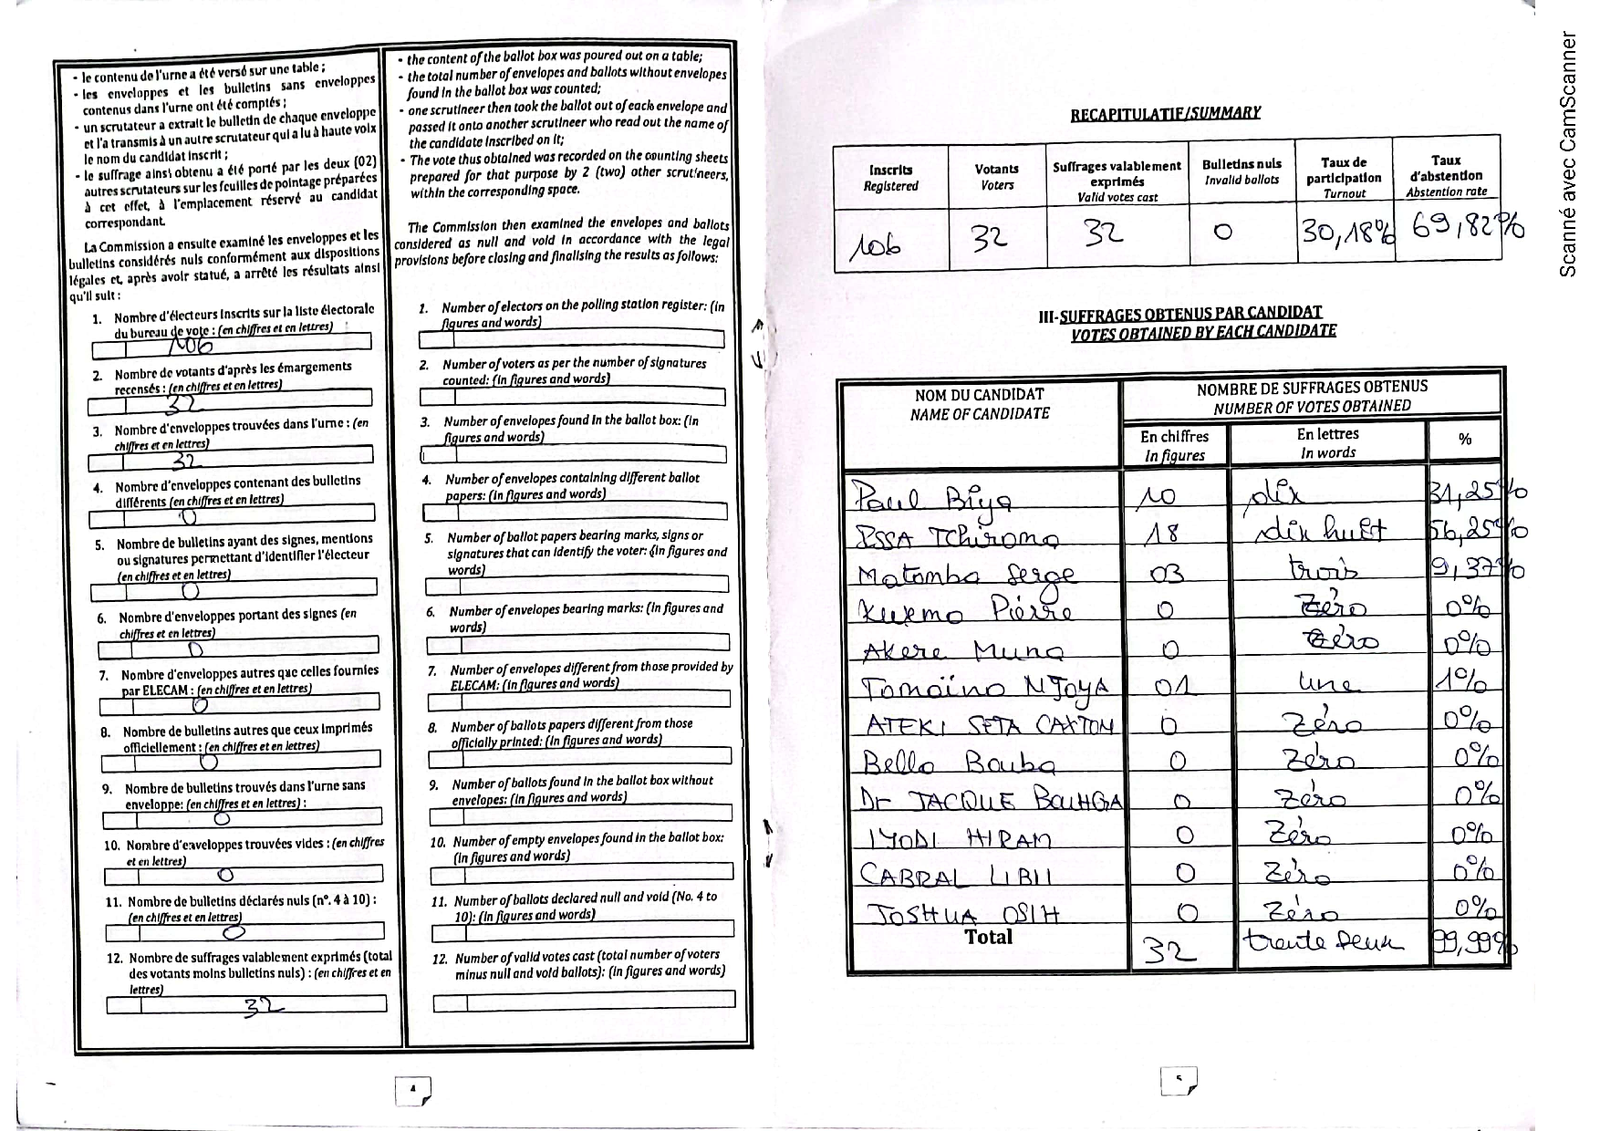 - le contenu de l'urne a été versé sur une table ;
- les enveloppes et les bulletins sans enveloppes
contenus dans l'urne ont été comptés ;
- un scrutateur a extrait le bulletin de chaque enveloppe
et l'a transmis à un autre scrutateur qui a lu à haute voix
le nom du candidat inscrit ;
- le suffrage ainsi obtenu a été porté par les deux (02)
autres scrutateurs sur les feuilles de pointage préparées
à cet effet, à l'emplacement réservé au candidat
correspondant.
La Commission a ensuite examiné les enveloppes et les
bulletins considérés nuls conformément aux dispositions
légales et, après avoir statué, a arrêté les résultats ainsi
qu'il suit :
1. Nombre d'électeurs inscrits sur la liste électorale
du bureau de vote : (en chiffres et en lettres)
106
2. Nombre de votants d'après les émargements
recensés : (en chiffres et en lettres)
32
3. Nombre d'enveloppes trouvées dans l'urne : (en
chiffres et en lettres)
32
4. Nombre d'enveloppes contenant des bulletins
différents (en chiffres et en lettres)
0
5. Nombre de bulletins ayant des signes, mentions
ou signatures permettant d'identifier l'électeur
(en chiffres et en lettres)
0
6. Nombre d'enveloppes portant des signes (en
chiffres et en lettres)
0
7. Nombre d'enveloppes autres que celles fournies
par ELECAM : (en chiffres et en lettres)
0
8. Nombre de bulletins autres que ceux imprimés
officiellement : (en chiffres et en lettres)
0
9. Nombre de bulletins trouvés dans l'urne sans
enveloppe: (en chiffres et en lettres) :
0
10. Nombre d'enveloppes trouvées vides : (en chiffres
et en lettres)
0
11. Nombre de bulletins déclarés nuls (n°. 4 à 10) :
(en chiffres et en lettres)
0
12. Nombre de suffrages valablement exprimés (total
des votants moins bulletins nuls) : (en chiffres et en
lettres)
32
- the content of the ballot box was poured out on a table;
- the total number of envelopes and ballots without envelopes
found in the ballot box was counted;
- one scrutineer then took the ballot out of each envelope and
passed it onto another scrutineer who read out the name of
the candidate inscribed on it;
- The vote thus obtained was recorded on the counting sheets
prepared for that purpose by 2 (two) other scrutineers,
within the corresponding space.
The Commission then examined the envelopes and ballots
considered as null and void in accordance with the legal
provisions before closing and finalising the results as follows:
1. Number of electors on the polling station register: (in
figures and words)
2. Number of voters as per the number of signatures
counted: (in figures and words)
3. Number of envelopes found in the ballot box: (in
figures and words)
4. Number of envelopes containing different ballot
papers: (in figures and words)
5. Number of ballot papers bearing marks, signs or
signatures that can identify the voter: (in figures and
words)
6. Number of envelopes bearing marks: (in figures and
words)
7. Number of envelopes different from those provided by
ELECAM: (in figures and words)
8. Number of ballots papers different from those
officially printed: (in figures and words)
9. Number of ballots found in the ballot box without
envelopes: (in figures and words)
10. Number of empty envelopes found in the ballot box:
(in figures and words)
11. Number of ballots declared null and void (No. 4 to
10): (in figures and words)
12. Number of valid votes cast (total number of voters
minus null and void ballots): (in figures and words)
4
RECAPITULATIF/SUMMARY
Inscrits Registered Votants Voters Suffrages valablement exprimés Valid votes cast Bulletins nuls Invalid ballots Taux de participation Turnout Taux d'abstention Abstention rate
106 32 32 0 30,18% 69,82%
III-SUFFRAGES OBTENUS PAR CANDIDAT
VOTES OBTAINED BY EACH CANDIDATE
NOM DU CANDIDAT NAME OF CANDIDATE
NOMBRE DE SUFFRAGES OBTENUS
NUMBER OF VOTES OBTAINED
En chiffres In figures En lettres In words %
Paul Biya 10 dix 31,25%
ISSA Tchiroma 18 dix huit 56,25%
Matomba Serge 03 trois 9,37%
Kwemo Pierre 0 Zéro 0%
Akere Muna 0 Zéro 0%
Tomaïno NJOYA 01 une 1%
ATEKI SETA CAXTON 0 Zéro 0%
Bello Bouba 0 Zéro 0%
Dr JACQUE BOUHGA 0 Zéro 0%
IYODI HIRAM 0 Zéro 0%
CABRAL LIBII 0 Zéro 0%
JOSHUA OSIH 0 Zéro 0%
Total 32 trente deux 99,99%
5
Scanné avec CamScanner